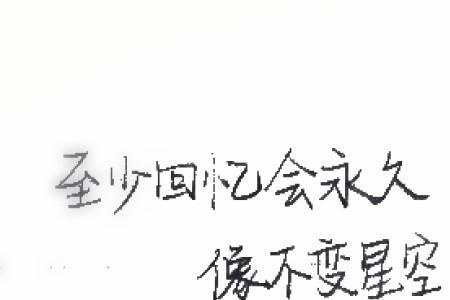 至少回忆会永久
像不变星空